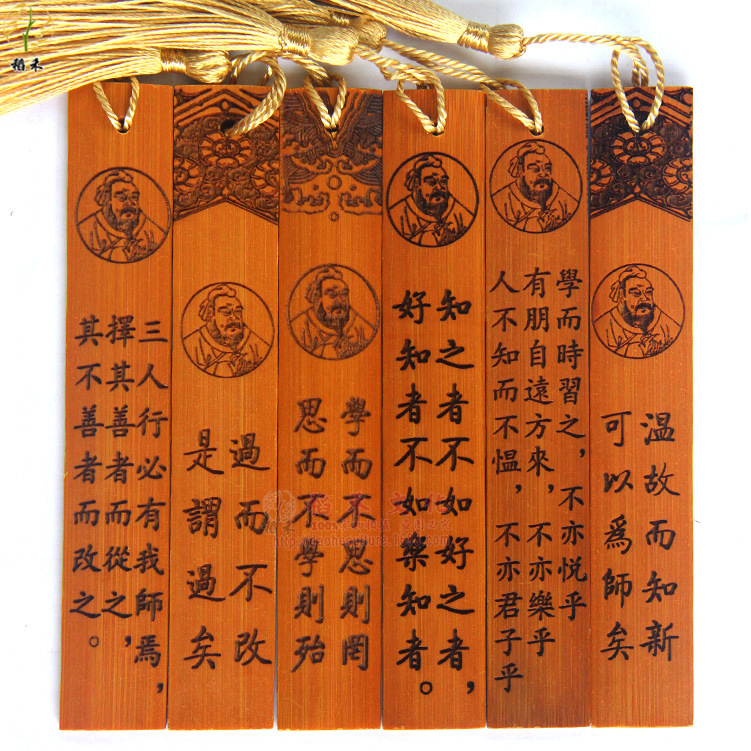 温故而知新
可以爲師矣
學而時習之，不亦悅乎
有朋自遠方來，不亦樂乎
人不知而不愠，不亦君子乎
知之者不如好之者，
好知者不如樂知者。
學而不思則罔
思而不學則殆
過而不改
是謂過矣
三人行必有我師焉，
擇其善者而從之，
其不善者而改之。